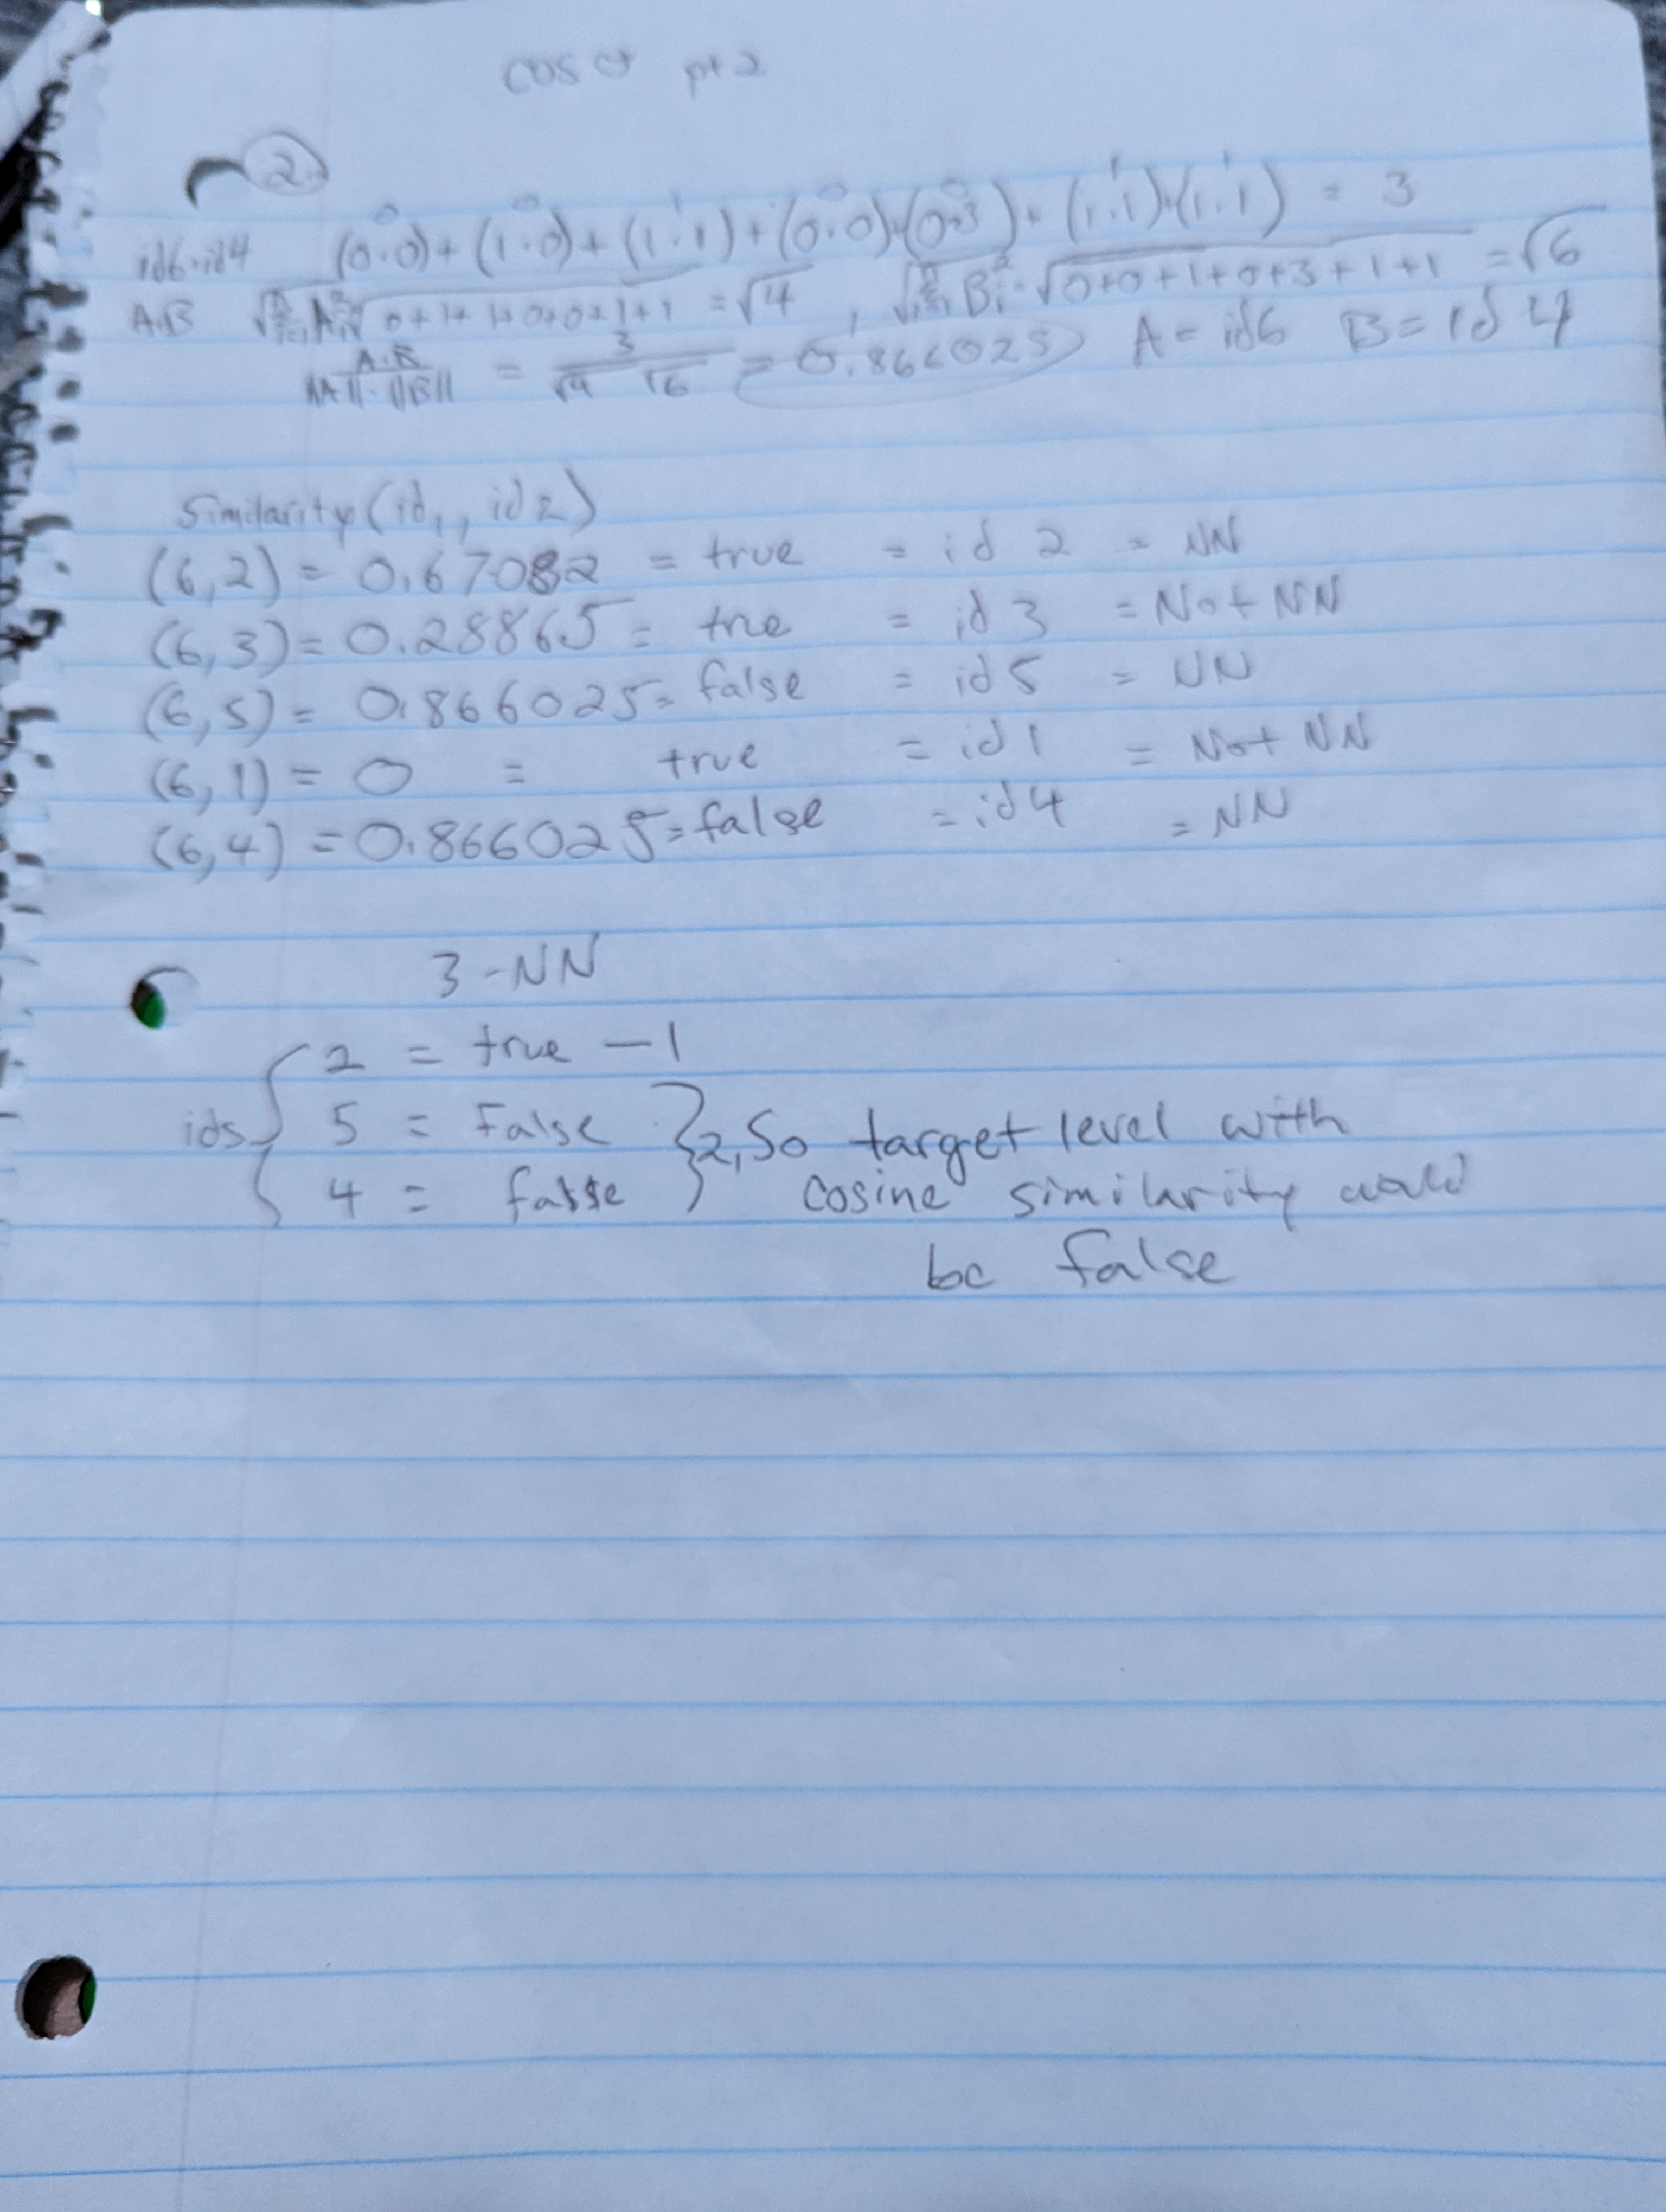 cos ct pt 2
2.
0 0 1 0 0 1 1
id6·id4 (0·0)+(1·0)+(1·1)+(0·0)+(0·3)+(1·1)+(1·1) = 3
A·B √Σ A² √0+1+1+0+0+1+1 = √4 , √Σ Bi² = √0+0+1+0+3+1+1 = √6
A·B / ||A||·||B|| = 3 / √4 √6 = 0.866025 A = id6 B = id 4
Similarity (id1, id2)
(6,2) = 0.67082 = true = id 2 = NN
(6,3) = 0.28865 = true = id 3 = Not NN
(6,5) = 0.866025 = false = id 5 = NN
(6,1) = 0 = true = id 1 = Not NN
(6,4) = 0.866025 = false = id 4 = NN
3-NN
2 = true — 1
ids 5 = False } 2, So target level with
4 = false cosine similarity would
be false